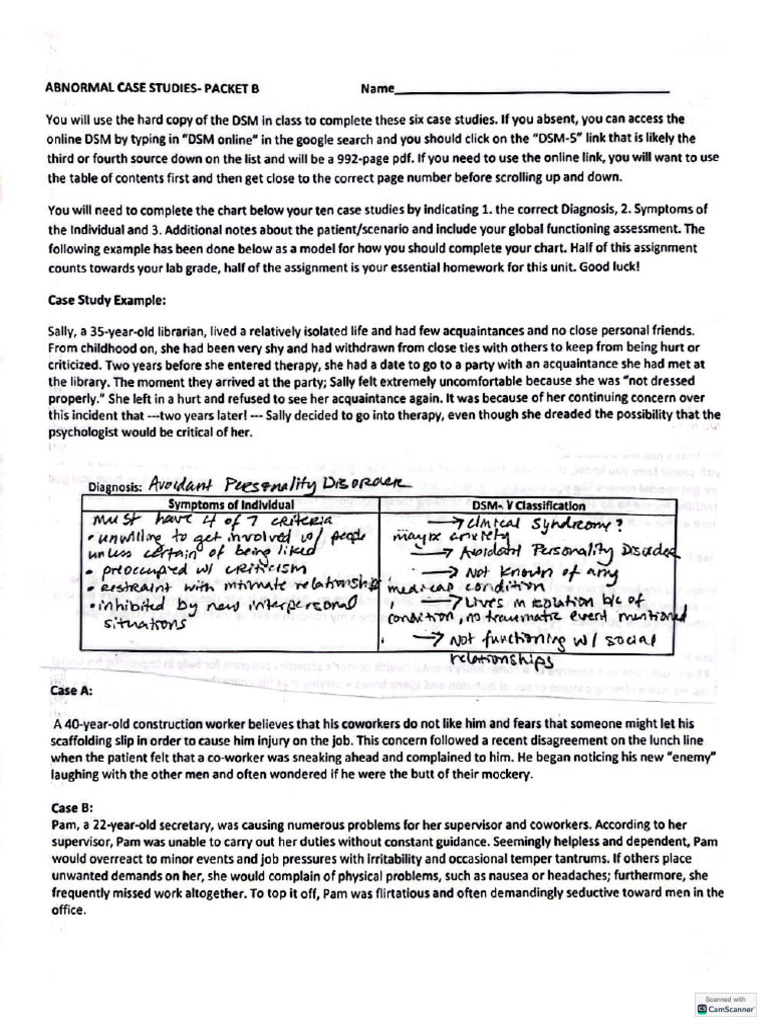 ABNORMAL CASE STUDIES- PACKET B Name
You will use the hard copy of the DSM in class to complete these six case studies. If you absent, you can access the
online DSM by typing in "DSM online" in the google search and you should click on the "DSM-5" link that is likely the
third or fourth source down on the list and will be a 992-page pdf. If you need to use the online link, you will want to use
the table of contents first and then get close to the correct page number before scrolling up and down.
You will need to complete the chart below your ten case studies by indicating 1. the correct Diagnosis, 2. Symptoms of
the Individual and 3. Additional notes about the patient/scenario and include your global functioning assessment. The
following example has been done below as a model for how you should complete your chart. Half of this assignment
counts towards your lab grade, half of the assignment is your essential homework for this unit. Good luck!
Case Study Example:
Sally, a 35-year-old librarian, lived a relatively isolated life and had few acquaintances and no close personal friends.
From childhood on, she had been very shy and had withdrawn from close ties with others to keep from being hurt or
criticized. Two years before she entered therapy, she had a date to go to a party with an acquaintance she had met at
the library. The moment they arrived at the party; Sally felt extremely uncomfortable because she was "not dressed
properly." She left in a hurt and refused to see her acquaintance again. It was because of her continuing concern over
this incident that ---two years later! --- Sally decided to go into therapy, even though she dreaded the possibility that the
psychologist would be critical of her.
Diagnosis: Avoidant Personality Disorder
Symptoms of Individual
must have 4 of 7 criteria
• unwilling to get involved w/ people
unless certain of being liked
• preoccupied w/ criticism
• restraint with intimate relationships
• inhibited by new interpersonal
situations
DSM- V Classification
→ clinical syndrome?
maybe anxiety
→ Avoidant Personality Disorder
→ Not known of any
medical condition
→ Lives in isolation b/c of
condition, no traumatic event mentioned
→ Not functioning w/ social
relationships
Case A:
A 40-year-old construction worker believes that his coworkers do not like him and fears that someone might let his
scaffolding slip in order to cause him injury on the job. This concern followed a recent disagreement on the lunch line
when the patient felt that a co-worker was sneaking ahead and complained to him. He began noticing his new "enemy"
laughing with the other men and often wondered if he were the butt of their mockery.
Case B:
Pam, a 22-year-old secretary, was causing numerous problems for her supervisor and coworkers. According to her
supervisor, Pam was unable to carry out her duties without constant guidance. Seemingly helpless and dependent, Pam
would overreact to minor events and job pressures with irritability and occasional temper tantrums. If others place
unwanted demands on her, she would complain of physical problems, such as nausea or headaches; furthermore, she
frequently missed work altogether. To top it off, Pam was flirtatious and often demandingly seductive toward men in the
office.
Scanned with
CS CamScanner